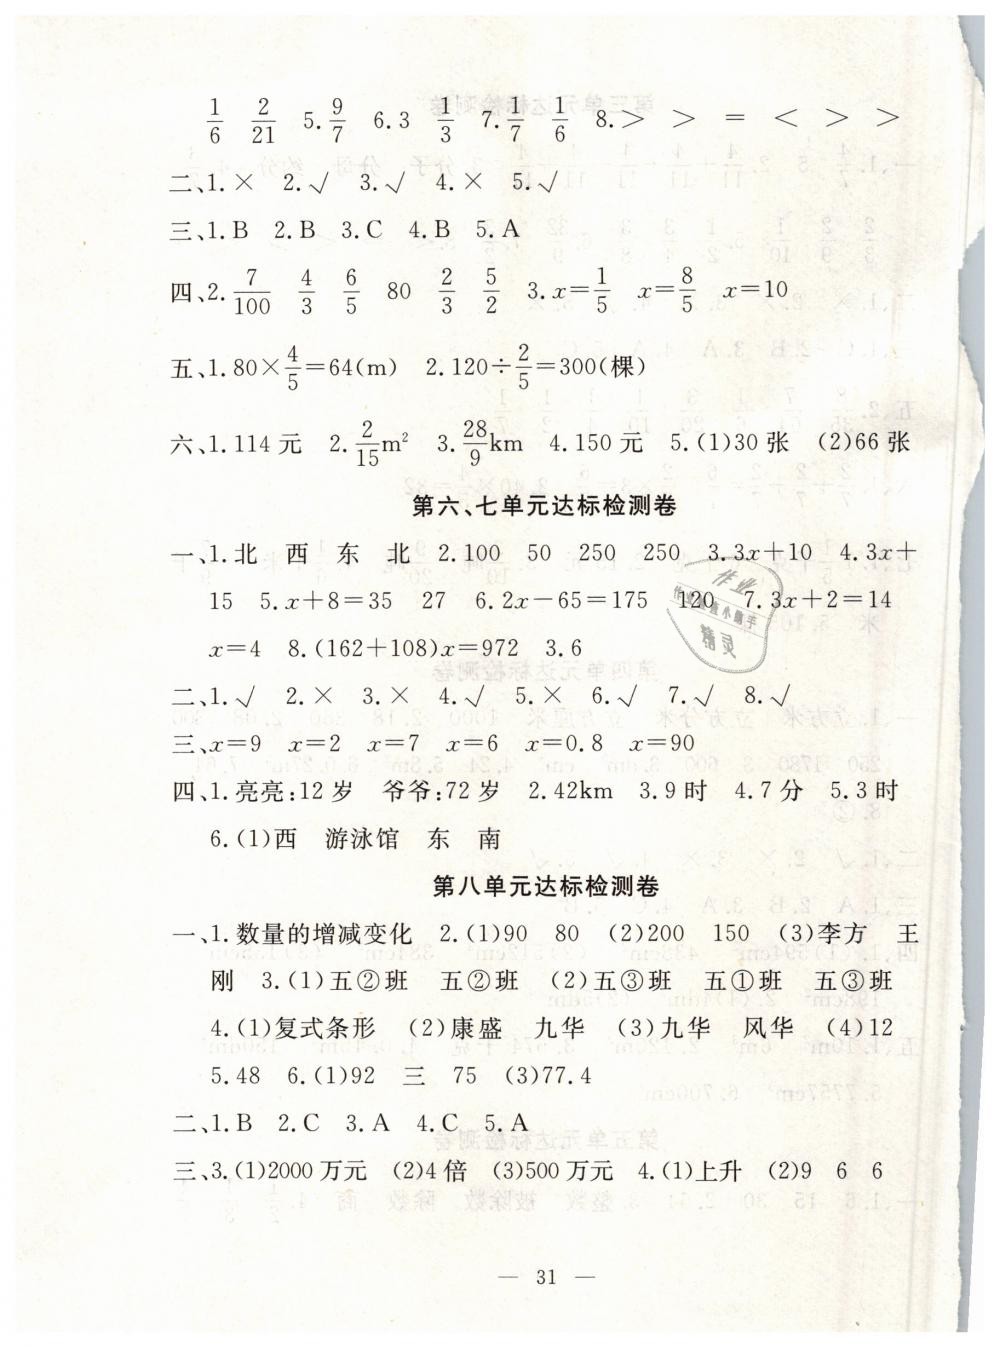 1/6 2/21 5.9/7 6.3 1/3 7.1/7 1/6 8.> > = < > >
二、1.× 2.√ 3.√ 4.× 5.√
三、1.B 2.B 3.C 4.B 5.A
四、2.7/100 4/3 6/5 80 2/3 5/2 3.x=1/5 x=8/5 x=10
五、1.80×4/5=64(m) 2.120÷2/5=300(棵)
六、1.114元 2.2/15m² 3.28/9km 4.150元 5.(1)30张 (2)66张
第六、七单元达标检测卷
一、1.北 西 东 北 2.100 50 250 250 3.3x+10 4.3x+
15 5.x+8=35 27 6.2x-65=175 120 7.3x+2=14
x=4 8.(162+108)x=972 3.6
二、1.√ 2.× 3.× 4.√ 5.× 6.√ 7.√ 8.√
三、x=9 x=2 x=7 x=6 x=0.8 x=90
四、1.亮亮:12岁 爷爷:72岁 2.42km 3.9时 4.7分 5.3时
6.(1)西 游泳馆 东 南
第八单元达标检测卷
一、1.数量的增减变化 2.(1)90 80 (2)200 150 (3)李方 王
刚 3.(1)五②班 五②班 (2)五③班 五①班 五③班
4.(1)复式条形 (2)康盛 九华 (3)九华 风华 (4)12
5.48 6.(1)92 三 75 (3)77.4
二、1.B 2.C 3.A 4.C 5.A
三、3.(1)2000万元 (2)4倍 (3)500万元 4.(1)上升 (2)9 6 6
— 31 —
作业
精灵